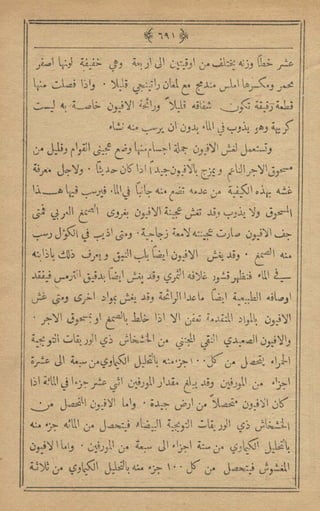 ﴿ ٦٩١ ﴾
عشر خطًا وزنه يختلف من اوقيتين الى اربعة وهي خفيفة لونها اصفر
محمر ومكسرها املس مندمج مع لمعان راتينجي قليلًا . واذا فصلت منها
قطعة رقيقة تكون شفافة قليلًا ورائحة الافيون خاصة به ليست
كريهة وهو يذوب في الماء بدون ان يرسب منه نشاء
وتستعمل لغش الافيون جملة اجسام منها وضع عجيني القوام وقليل من
مسحوق الاجر الناعم ويمزج بالافيون جيدًا اذا كان حديثًا . ولاجل معرفة
غشه بهذه الكيفية من عدمه تضع منه جانبًا في الماء فيرسب فيها هذا
المسحوق ولا يذوب وقد تغش عجينة الافيون بغروى الصمغ العربي فمتى
جف الافيون صارت عجينته لامعة زجاجية . ومتى اذيب في الكؤل رسب
منه الصمغ . وقد يغش الافيون ايضًا بلب النبق ويعرف ذلك باذابته
في الماء فتظهر قشور غلافه الثمري وقد يغش ايضًا بدقيق الترمس فيفقد
اوصافه الطبيعية ايضًا ماعدا الرائحة وقد يغش بمواد اخرى ومتى غش
الافيون بالمواد المتقدمة تعفن الا اذا خلط بالصمغ او بمسحوق الاجر .
والافيون الصعيدي النقي المجتنى من الخشخاش ذي الوريقات التويجية
الحمراء يتحصل من كل ١٠٠ جزء منه بالتحليل الكيماوي من سبعة الى عشرة
اجزاء من المورفين وقد يبلغ مقدار المورفين اثني عشر جزءا في المائة اذا
كان الافيون متحصلًا من ارض جيدة . واما الافيون المتحصل من
الخشخاش ذي الوريقات التويجية البيضاء فيتحصل من المائة جزء منه
بالتحليل الكيماوي من ستة اجزاء الى سبعة من المورفين . واما الافيون
المغشوش فيتحصل من كل ١٠٠ جزء منه بالتحليل الكيماوي من ثلاثة